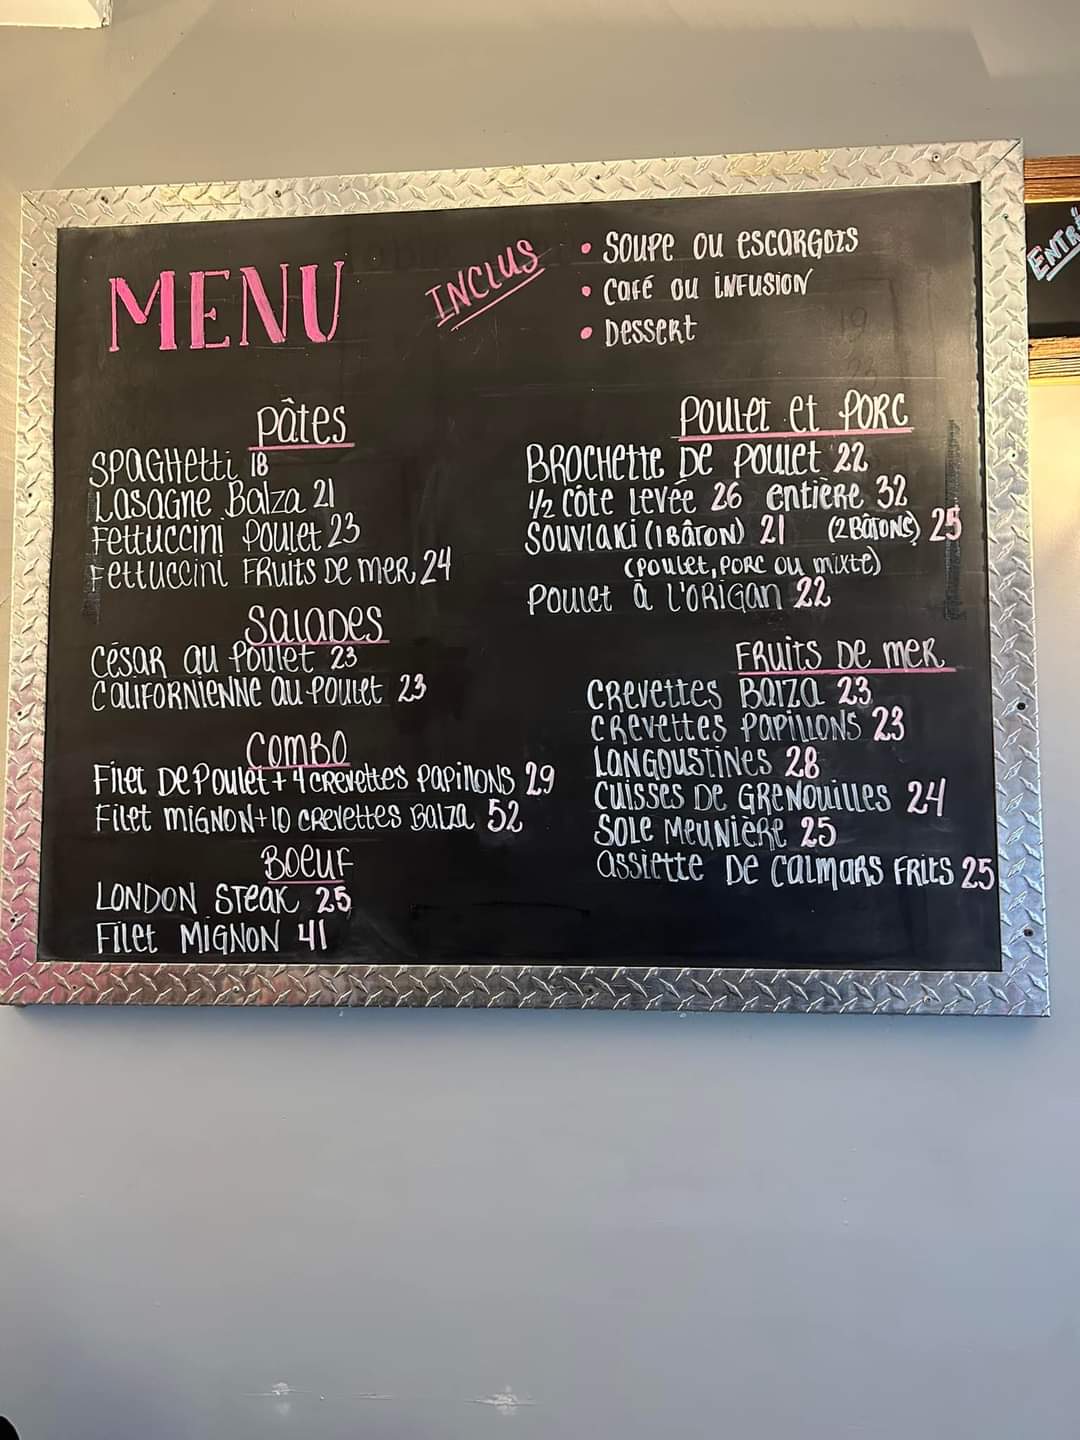 MENU
INCLUS
• SOUPE OU ESCARGOTS
• CAFÉ OU INFUSION
• DESSERT
PÂTES
SPAGHETTI 18
LASAGNE BALZA 21
FETTUCCINI POULET 23
FETTUCCINI FRUITS DE MER 24
SALADES
CÉSAR AU POULET 23
CALIFORNIENNE AU POULET 23
COMBO
FILET DE POULET + 4 CREVETTES PAPILLONS 29
FILET MIGNON + 10 CREVETTES BALZA 52
BOEUF
LONDON STEAK 25
FILET MIGNON 41
POULET ET PORC
BROCHETTE DE POULET 22
1/2 CÔTE LEVÉE 26 ENTIÈRE 32
SOUVLAKI (1 BÂTON) 21 (2 BÂTONS) 25
(POULET, PORC OU MIXTE)
POULET À L'ORIGAN 22
FRUITS DE MER
CREVETTES BALZA 23
CREVETTES PAPILLONS 23
LANGOUSTINES 28
CUISSES DE GRENOUILLES 24
SOLE MEUNIÈRE 25
ASSIETTE DE CALMARS FRITS 25
ENTR